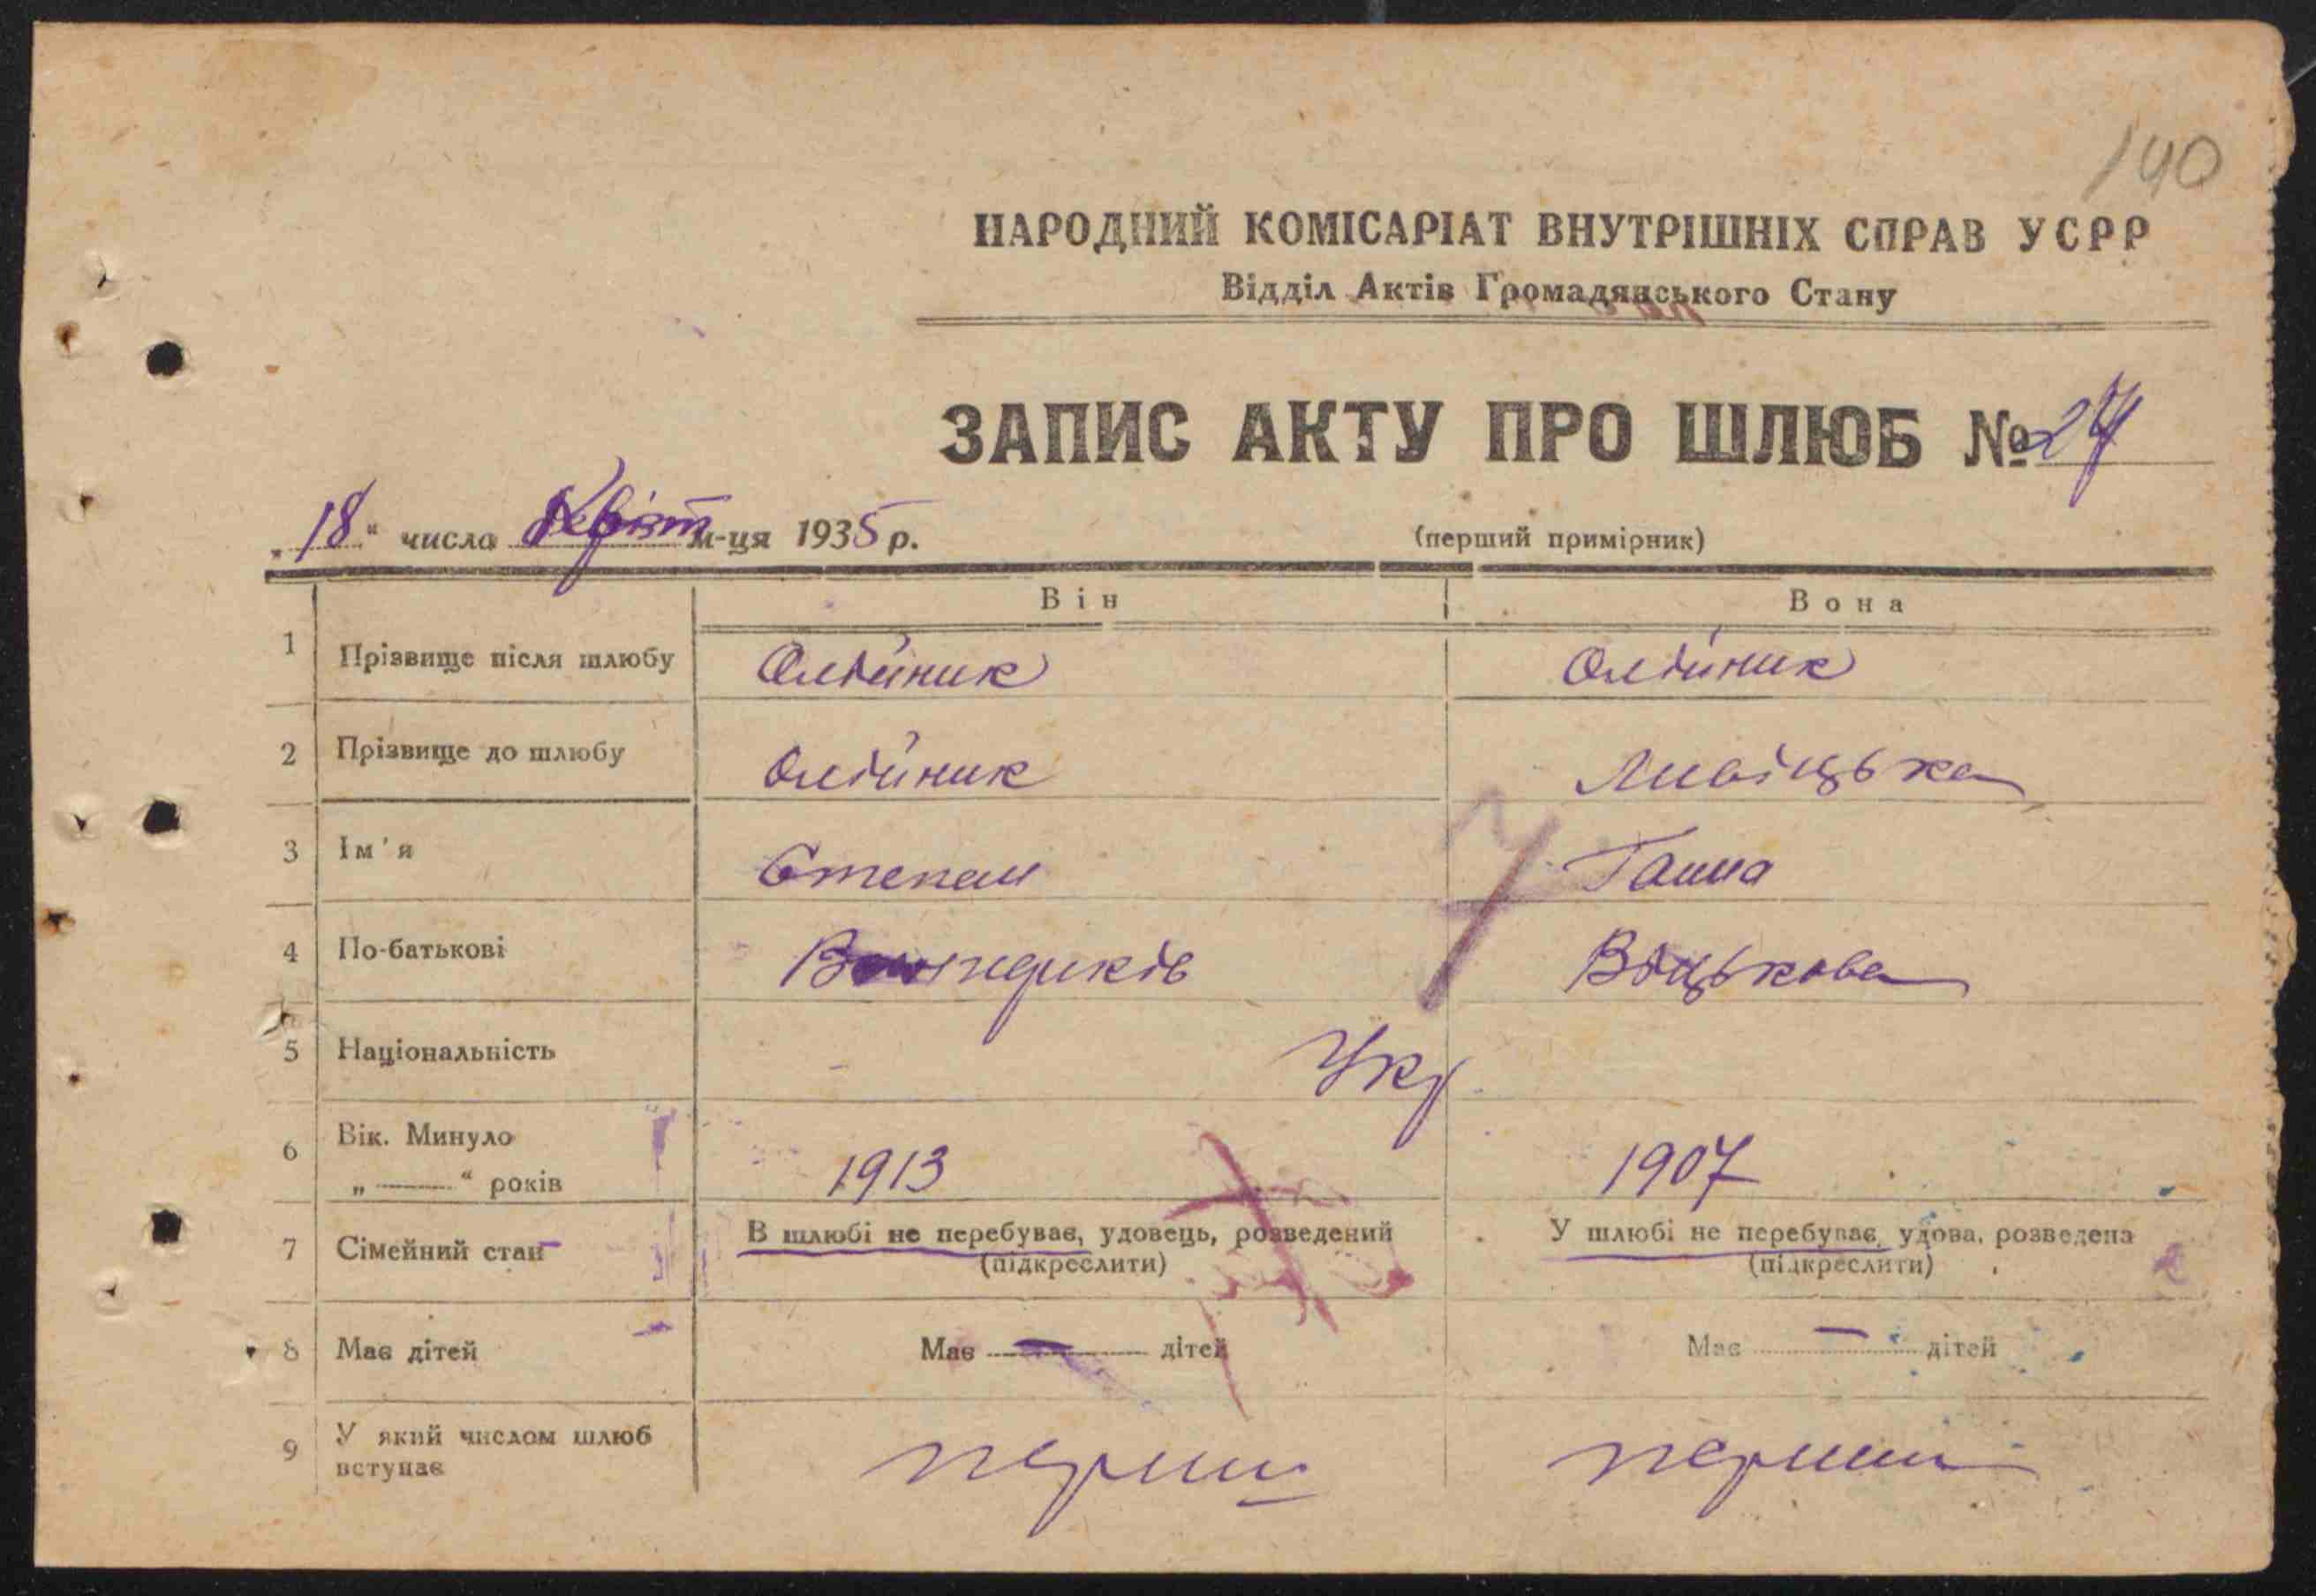 140
НАРОДНИЙ КОМІСАРІАТ ВНУТРІШНІХ СПРАВ УСРР
Відділ Актів Громадянського Стану
ЗАПИС АКТУ ПРО ШЛЮБ № 27
„18“ числа Квітн м-ця 1935 р.
(перший примірник)
Він Вона
1 Прізвище після шлюбу Олійник Олійник
2 Прізвище до шлюбу Олійник Лисіцька
3 Ім'я Степан Ганна
4 По-батькові Войцькова
5 Національність Укр.
6 Вік. Минуло „ “ років 1913 1907
7 Сімейний стан В шлюбі не перебуває, удовець, розведений У шлюбі не перебуває, удова, розведена
(підкреслити) (підкреслити)
8 Має дітей Має — дітей Має — дітей
9 У який числом шлюб вступає перший перший